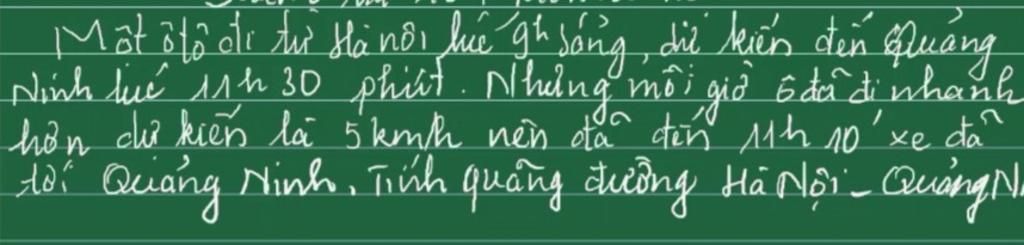 Một ôtô đi từ Hà nội lúc 9h sáng, dự kiến đến Quảng
Ninh lúc 11h 30 phút. Nhưng mỗi giờ ô đã đi nhanh
hơn dự kiến là 5km/h nên đã đến 11h 10' xe đã
tới Quảng Ninh. Tính quãng đường Hà Nội - Quảng N